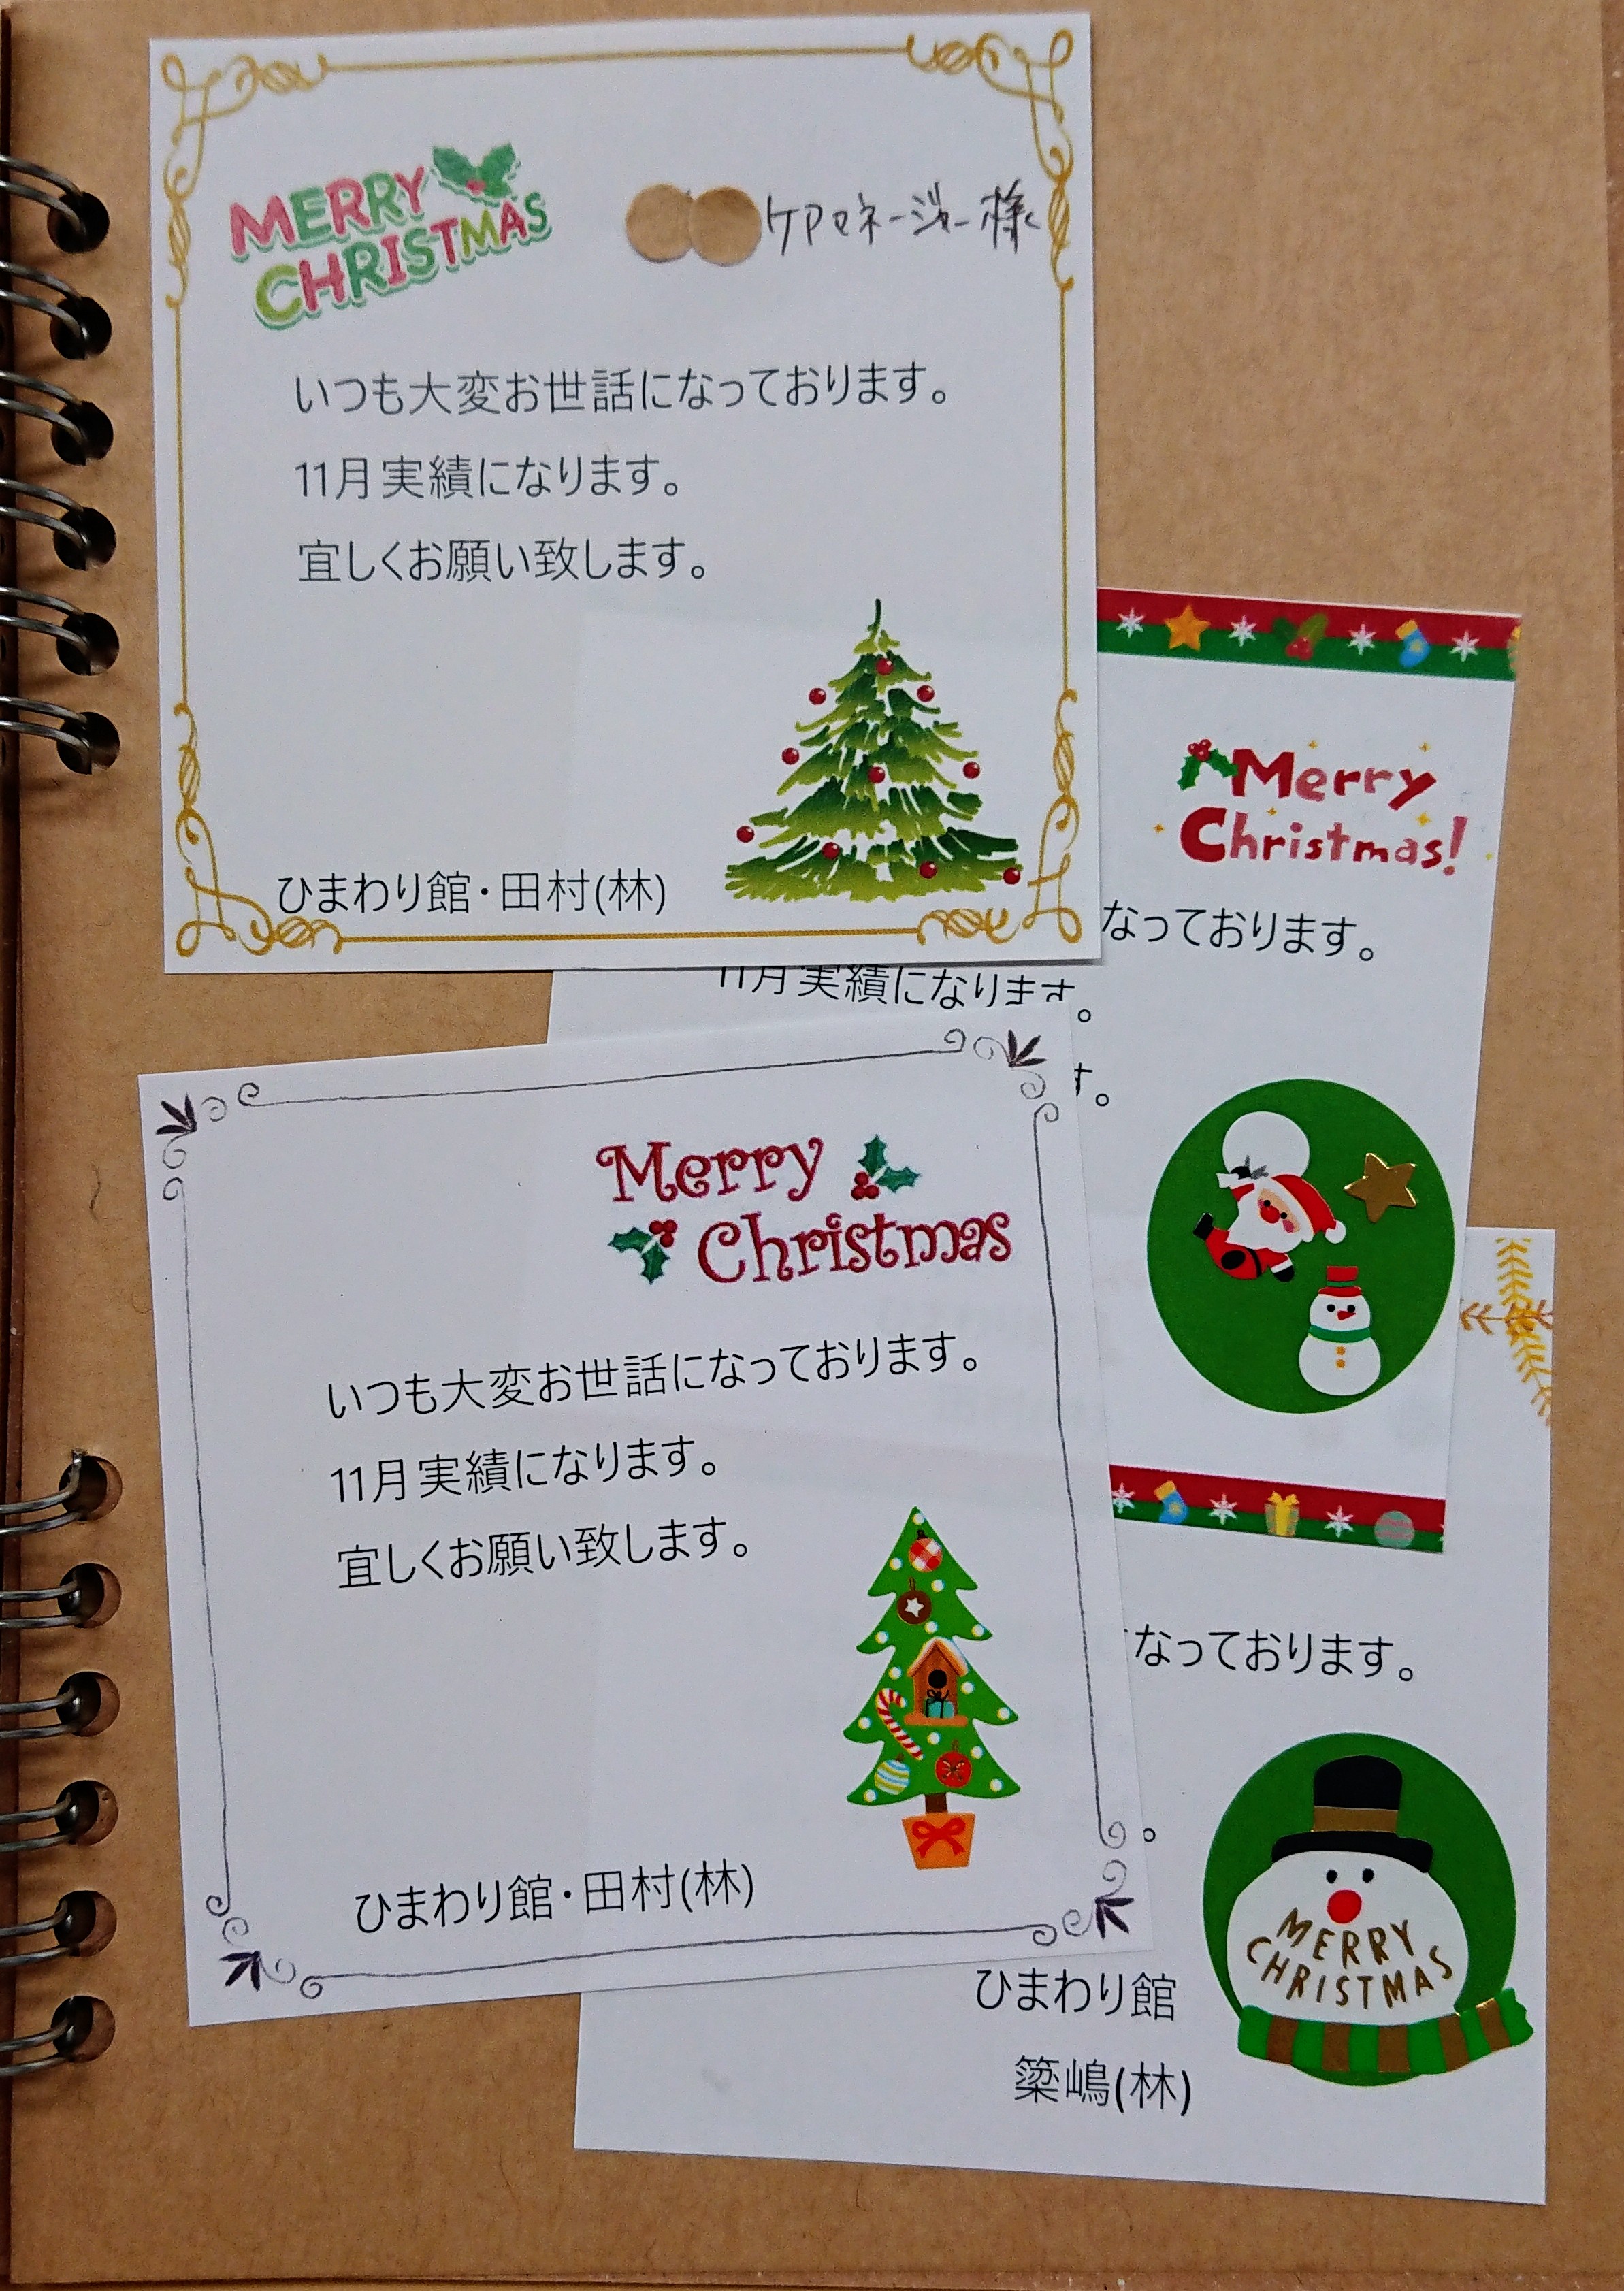 MERRY
CHRISTMAS
ケアマネージャー様
いつも大変お世話になっております。
11月実績になります。
宜しくお願い致します。
ひまわり館・田村(林)
Merry
Christmas!
なっております。
11月実績になります。
す。
Merry
Christmas
いつも大変お世話になっております。
11月実績になります。
宜しくお願い致します。
ひまわり館・田村(林)
なっております。
。
MERRY
CHRISTMAS
ひまわり館
簗嶋(林)